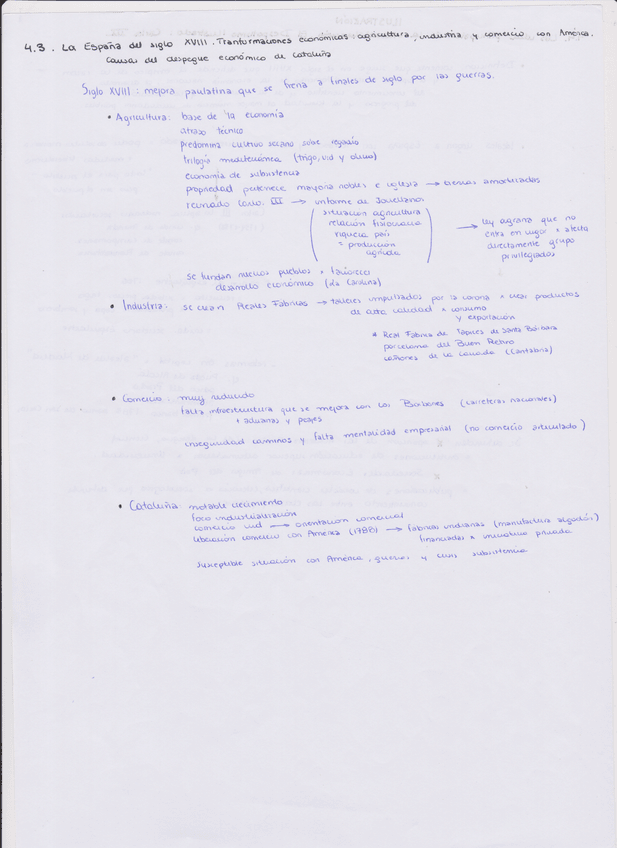 4.3. La España del siglo XVIII. Tranformaciones económicas: agricultura, industria y comercio con América.
Causas del despegue económico de Cataluña
Siglo XVIII: mejora paulatina que se frena a finales de siglo por las guerras.
• Agricultura: base de la economía
atraso técnico
predomina cultivo secano sobre regadío
trilogía mediterránea (trigo, vid y olivo)
economía de subsistencia
propiedad pertenece mayoría nobles e iglesia → tierras amortizadas
reinado Carlos III → informe de Jovellanos
situación agricultura
relación fisiocracia
riqueza país
= producción
agrícola
→ ley agraria que no
entra en vigor x afecta
directamente grupo
privilegiados
se fundan nuevos pueblos x favorecer
desarrollo económico (La Carolina)
• Industria: se crean Reales Fábricas → talleres impulsados por la corona x crear productos
de alta calidad x consumo
y exportación
* Real Fábrica de Tapices de Santa Bárbara
porcelana del Buen Retiro
cañones de la Cavada (Cantabria)
• Comercio: muy reducido
falta infraestructura que se mejora con los Borbones (carreteras nacionales)
+ aduanas y peajes
inseguridad caminos y falta mentalidad empresarial (no comercio articulado)
• Cataluña notable crecimiento
foco industrialización
comercio vid → orientación comercial
liberación comercio con América (1788) → fábricas indianas (manufactura algodón)
financiadas x iniciativa privada
susceptible situación con América, guerras y crisis subsistencia